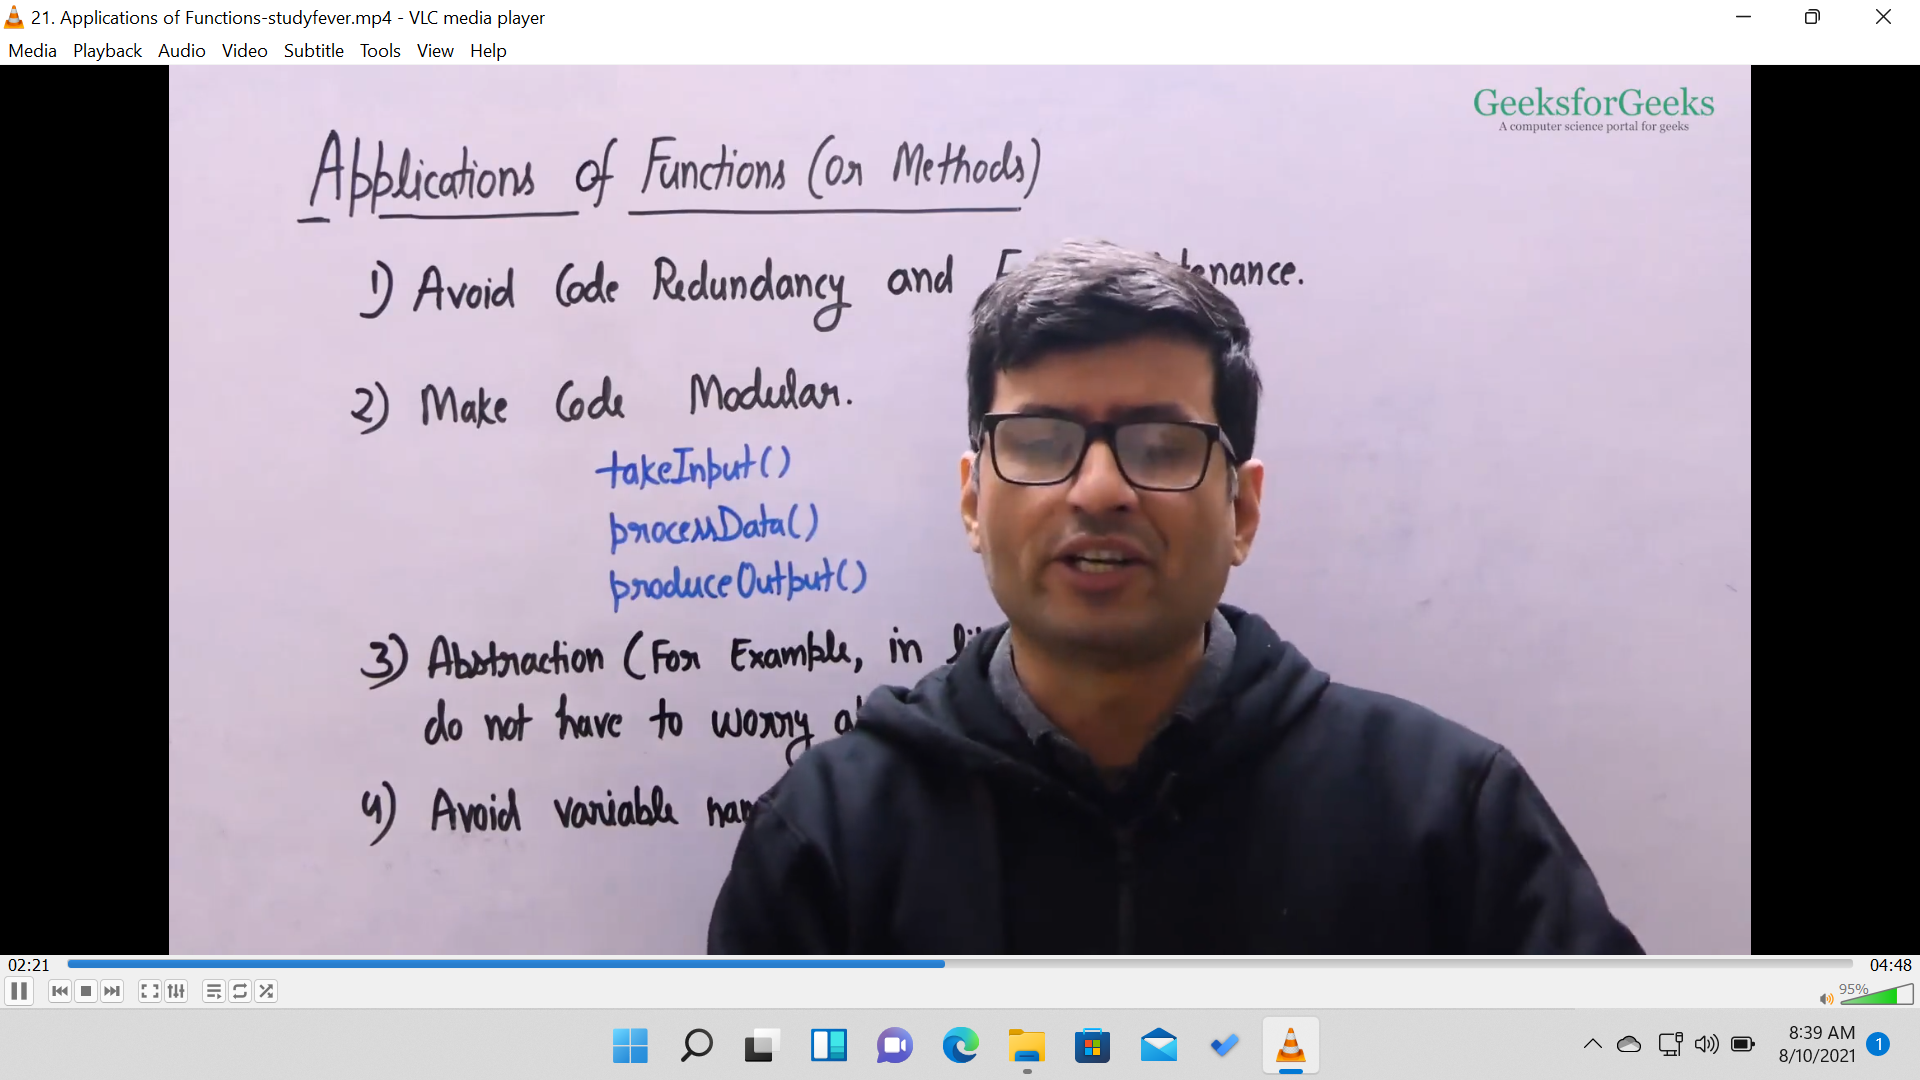 21. Applications of Functions-studyfever.mp4 - VLC media player
Media Playback Audio Video Subtitle Tools View Help
GeeksforGeeks
A computer science portal for geeks
Applications of Functions (or Methods)
1) Avoid Code Redundancy and
2) Make Code Modular.
takeInput()
processData()
produceOutput()
3) Abstraction (For Example, in
do not have to worry
4) Avoid variable
02:21
04:48
95%
8:39 AM
8/10/2021
1